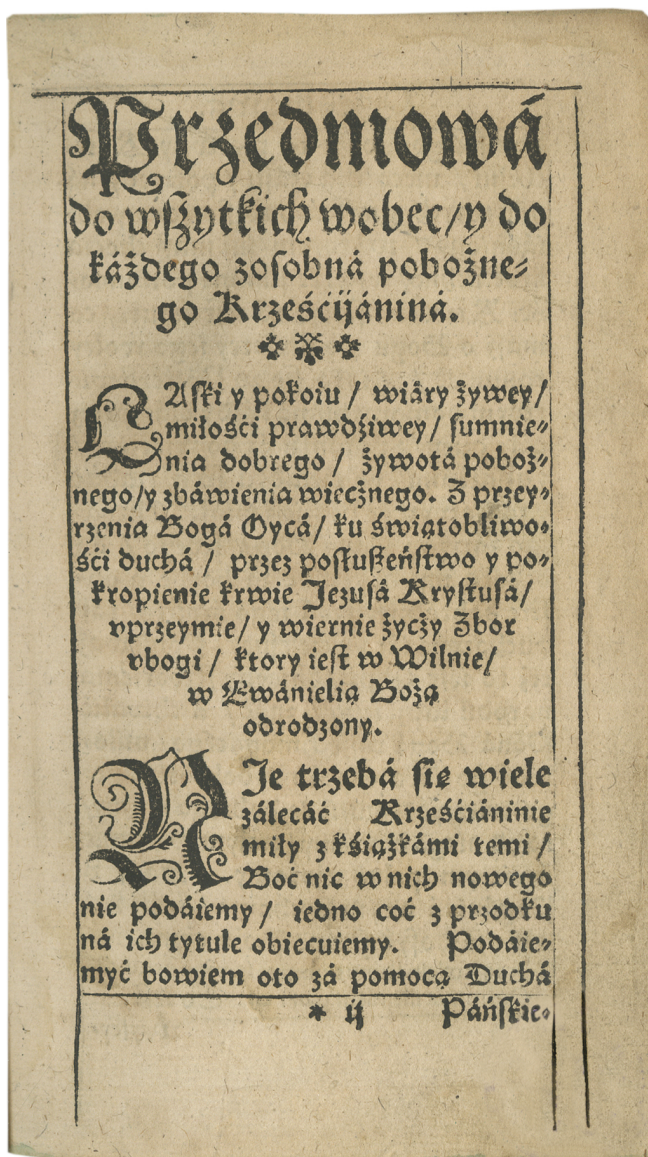 Przedmowá
do wſzytkich wobec/ y do
káżdego zoſobná pobożne⸗
go Krześćijániná.
LAſki y pokoiu / wiáry żywey/
miłośći prawdźiwey/ ſumnie⸗
nia dobrego / żywotá poboż⸗
nego/ y zbáwienia wiecżnego. Z przey⸗
rzenia Bogá Oycá/ ku świątobliwo⸗
śći duchá / przez poſłuſzeńſtwo y po⸗
kropienie krwie Jezuſá Kryſtuſá/
vprzeymie/ y wiernie życży Zbor
vbogi / ktory ieſt w Wilnie/
w Ewánielią Bożą
odrodzony.
NJe trzebá ſię wiele
zálecáć Krześćiáninie
miły z kśiążkámi temi /
Boć nic w nich nowego
nie podáiemy / iedno coć z przodku
ná ich tytule obiecuiemy. Podáie⸗
myć bowiem oto zá pomocą Duchá
* ij Páńſkie⸗